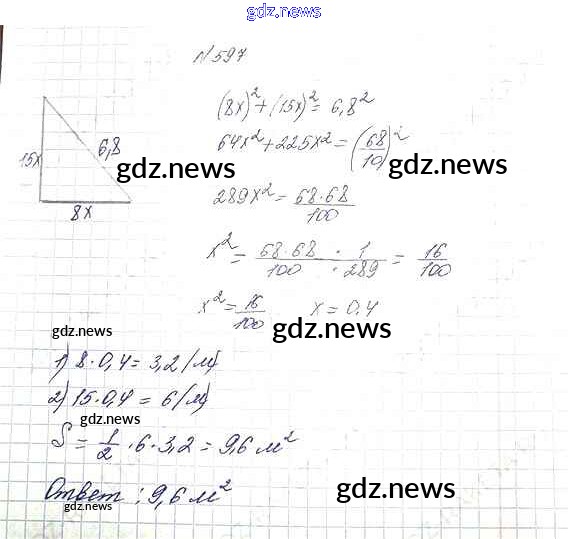 gdz.news
№597
(8x)² + (15x)² = 6,8²
64x² + 225x² = (68/10)²
gdz.news
289x² = 68·68/100
15x 6,8
8x
x² = 68·68/100 · 1/289 = 16/100
x² = 16/100 x = 0,4
gdz.news
gdz.news
1) 8·0,4 = 3,2 (м)
2) 15·0,4 = 6 (м)
gdz.news
S = 1/2 ·6·3,2 = 9,6 м²
Ответ: 9,6 м²
gdz.news
gdz.news